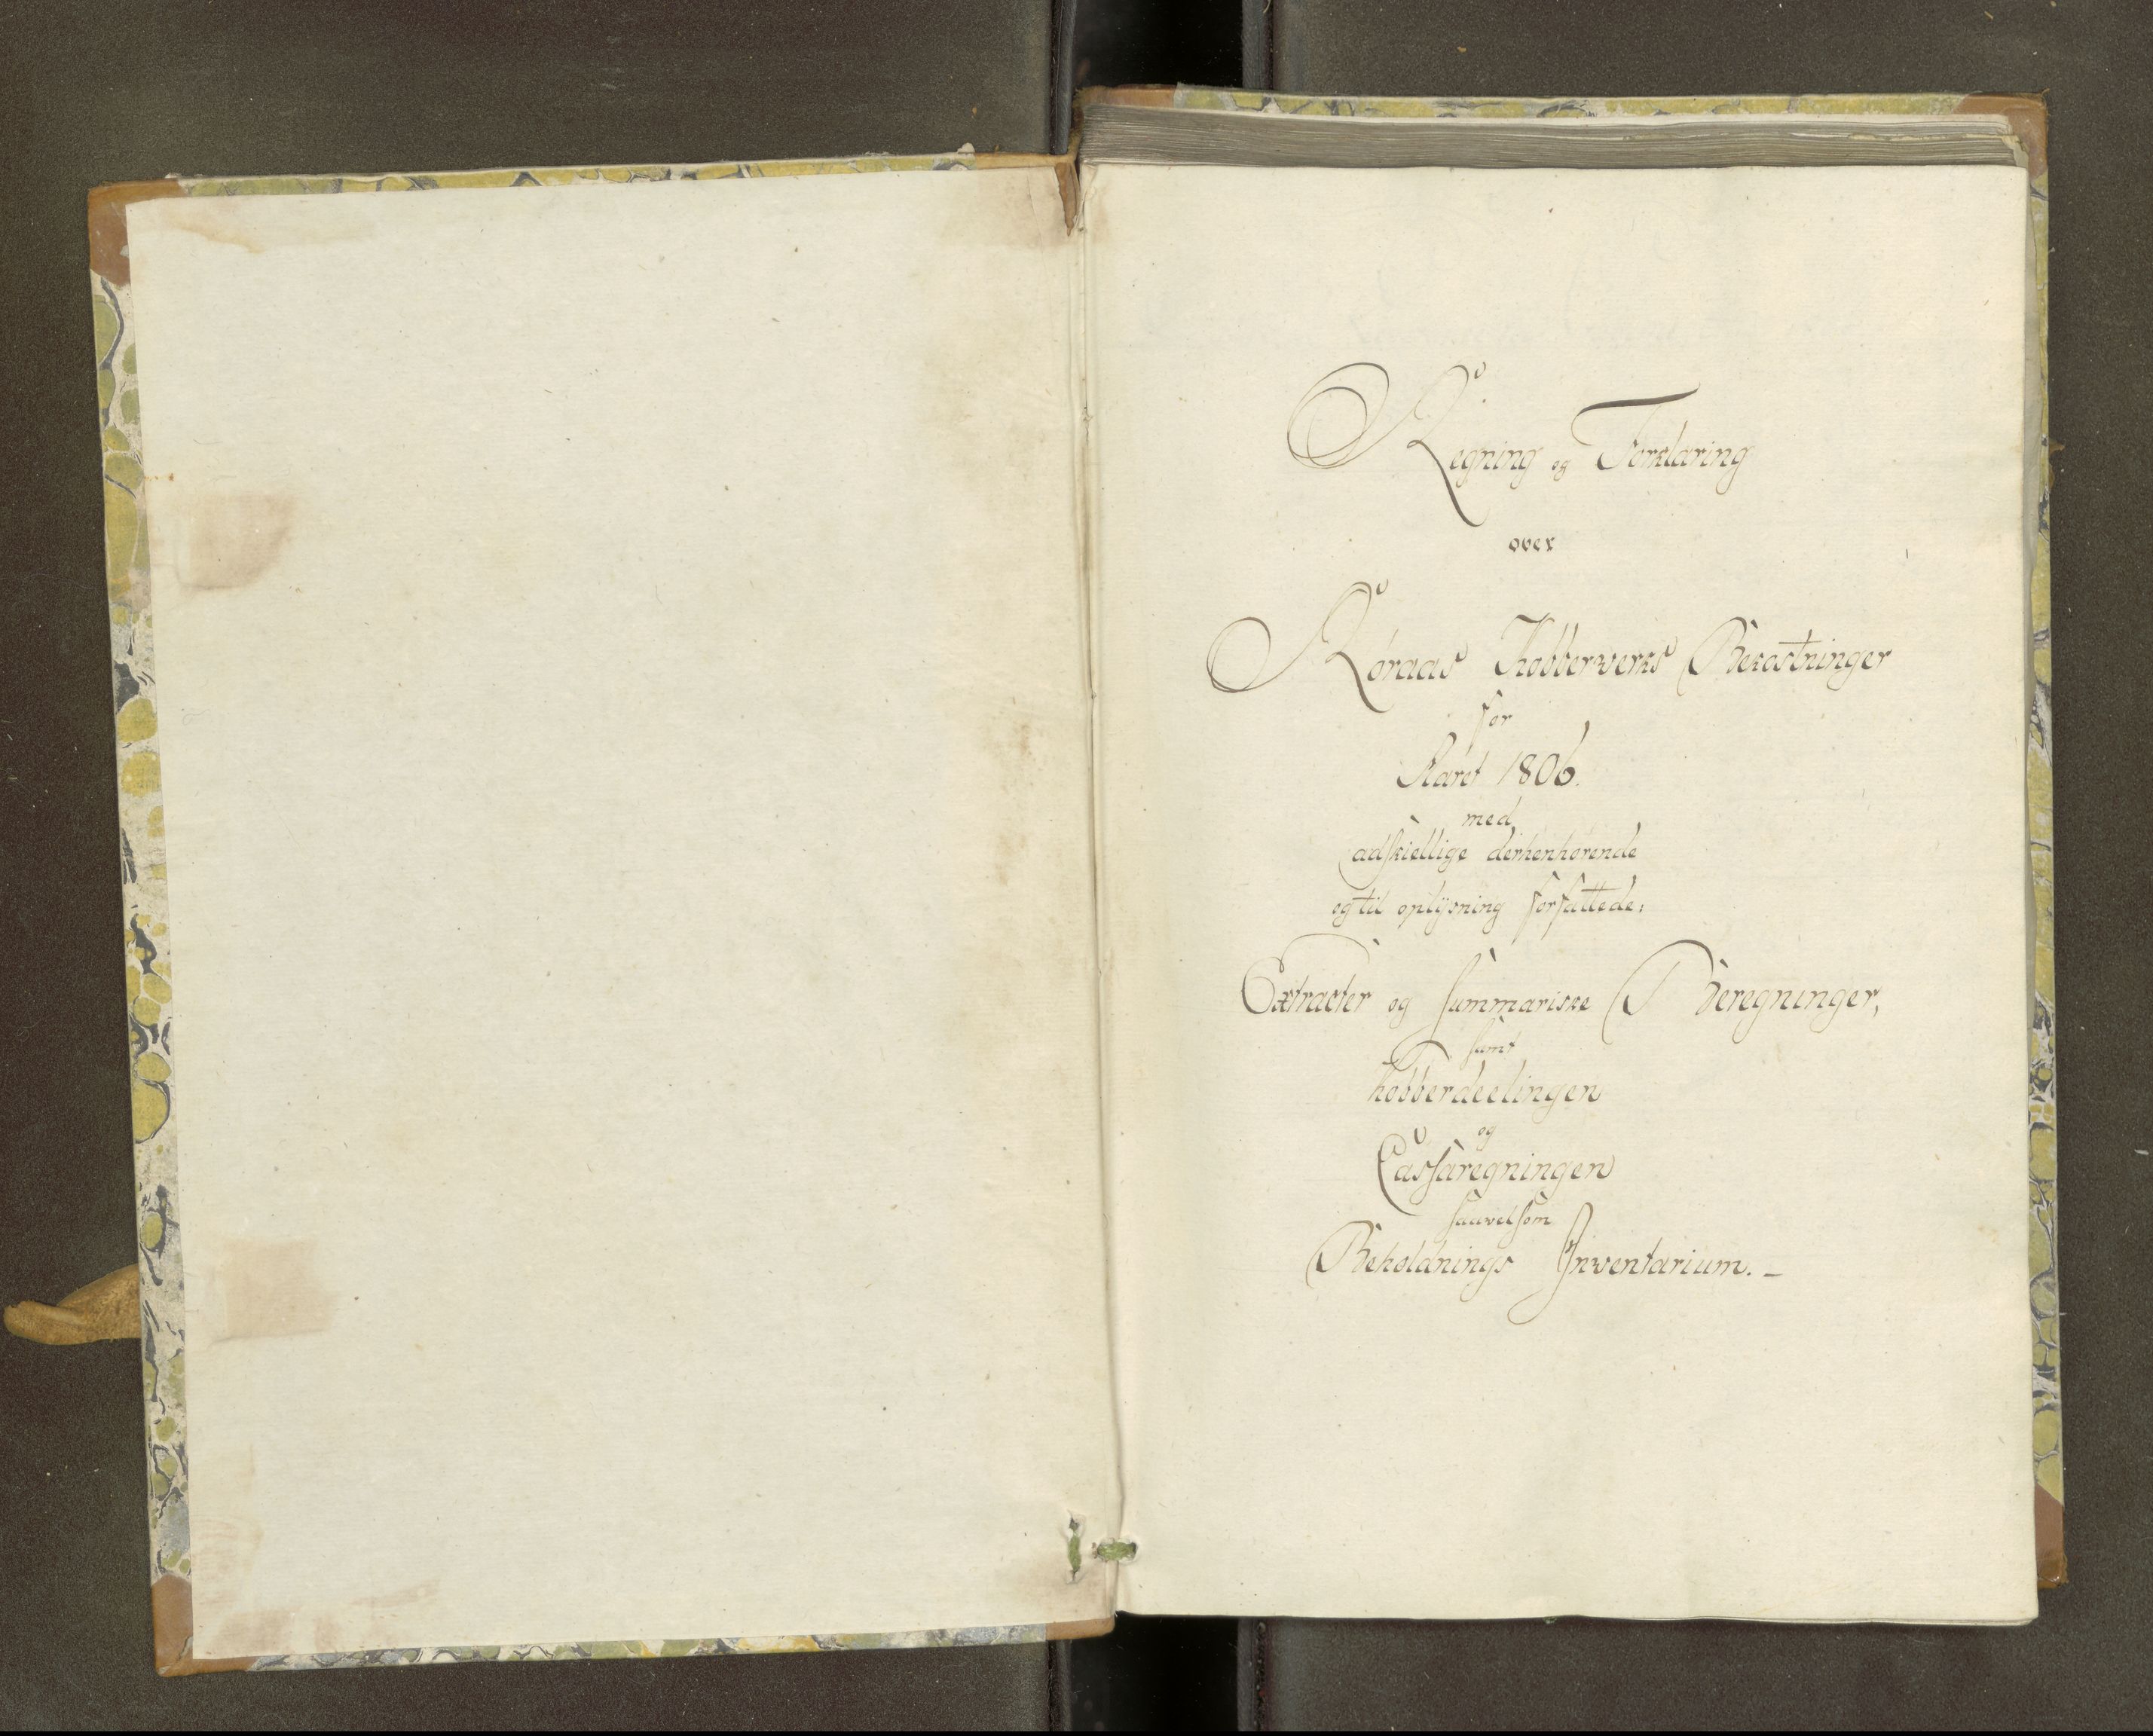 Regning og Forklaring
over
Røraas Kobberverks Bekostninger
for
Aaret 1806.
med
adskiellige derhenhørende
og til oplysning forfattede:
Extracter og Summariske Beregninger,
samt
Kobberdeelingen
og
Cassaregningen
saavelsom
Beholdnings Inventarium. -